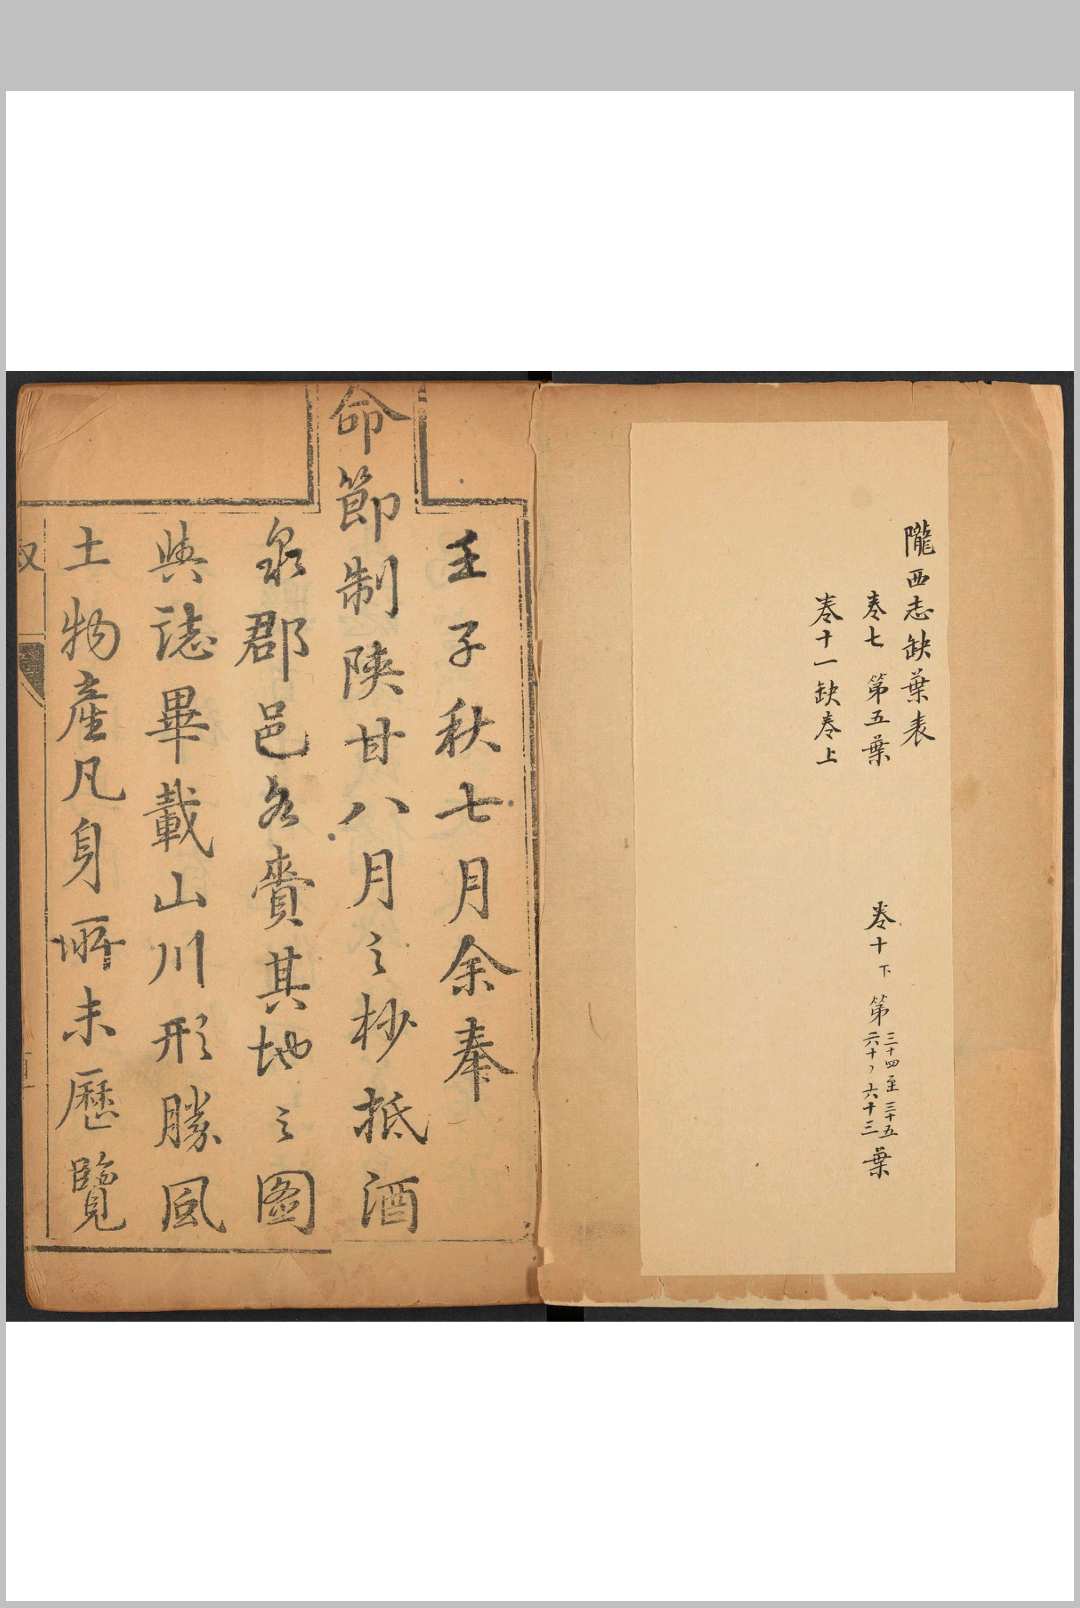 隴西志缺葉表
卷七 第五葉 卷十下 第三十四至三十五六十、六十三葉
卷十一缺卷上
壬子秋七月余奉
命節制陝甘八月之杪抵酒
泉郡邑各賫其地之圖
與誌畢載山川形勝風
土物產凡身所未歷覽